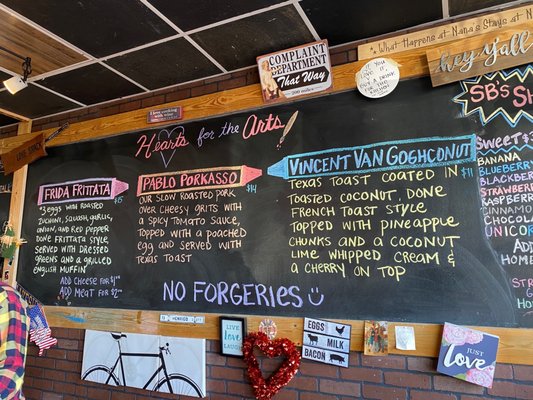 What Happens at Nana's Stays at
hey Y'all
COMPLAINT
DEPARTMENT
THAT WAY
200 MILES
Hearts for the Arts
SB's Sh
Frida Frittata
Eggs with Roasted
Zuchini, Squash, Garlic,
Onion, and Red Pepper
Done Frittata Style,
Served with Dressed
Greens and a Grilled
English Muffin
Add Cheese for $1
Add Meat for $2
Pablo Porkasso
$14
Our Slow Roasted Pork
over Cheesy Grits with
a Spicy Tomato Sauce,
Topped with a Poached
Egg and Served with
Texas Toast
Vincent Van Goghconut
$11
Texas Toast Coated in
Toasted Coconut, Done
French Toast Style
Topped with Pineapple
Chunks and a Coconut
Lime Whipped Cream &
a Cherry on Top
No Forgeries!
Sweet
Banana
Blueberry
Blackberry
Strawberry
Raspberry
Cinnamo
Chocol
Unicor
Add
Home
LIVE
LAUGH
LOVE
EGGS
MILK
BACON
JUST
Love